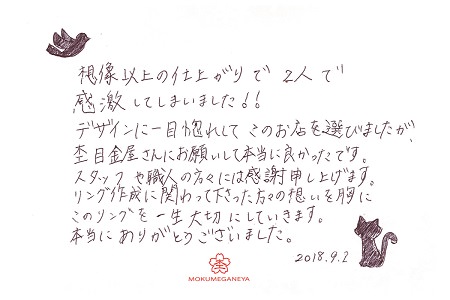 想像以上の仕上がりで2人で
感激してしまいました!!
デザインに一目惚れしてこのお店を選びましたが、
杢目金屋さんにお願いして本当に良かったです。
スタッフや職人の方々には感謝申し上げます。
リング作成に関わって下さった方々の想いを胸に
このリングを一生大切にしていきます。
本当にありがとうございました。
2018.9.2
杢
MOKUMEGANEYA